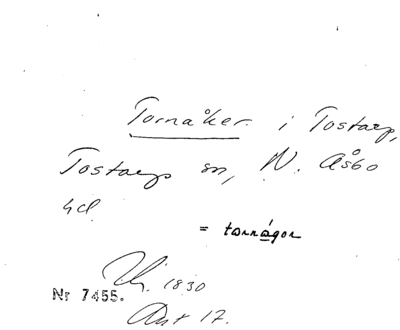 Tornåker i Tostarp,
Tostarps sn, N. Åsbo
hd
= tornågor
1830
Nr 7455.
Akt 17.